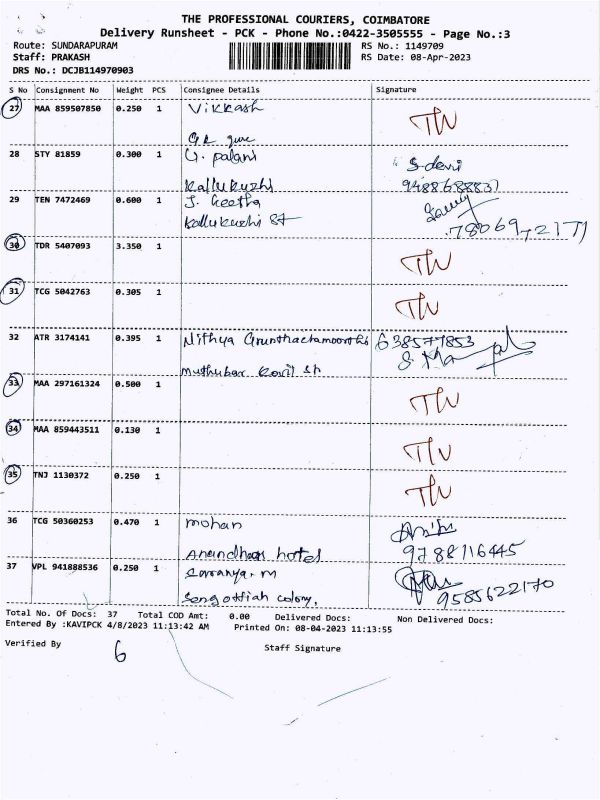 THE PROFESSIONAL COURIERS, COIMBATORE
Delivery Runsheet - PCK - Phone No.:0422-3505555 - Page No.:3
Route: SUNDARAPURAM RS No.: 1149709
Staff: PRAKASH RS Date: 08-Apr-2023
DRS No.: DCJB114970903
S No Consignment No Weight PCS Consignee Details Signature
27 MAA 859507850 0.250 1 Vikkash TW
28 STY 81859 0.300 1 G. palani S.devi
Kallukuzhi 9488688837
29 TEN 7472469 0.600 1 J. Geetha
Kallukuzhi St
30 TDR 5407093 3.350 1 TW
31 TCG 5042763 0.305 1 TW
32 ATR 3174141 0.395 1 Nithya 638577853
muthubar Kovil St
33 MAA 297161324 0.500 1 TW
34 MAA 859443511 0.130 1 TW
35 TNJ 1130372 0.250 1 TW
36 TCG 50360253 0.470 1 mohan
hotel 9788116445
37 VPL 941888536 0.250 1 Saranya.m
colony. 9585622170
Total No. Of Docs: 37 Total COD Amt: 0.00 Delivered Docs: Non Delivered Docs:
Entered By :KAVIPCK 4/8/2023 11:13:42 AM Printed On: 08-04-2023 11:13:55
Verified By 6 Staff Signature